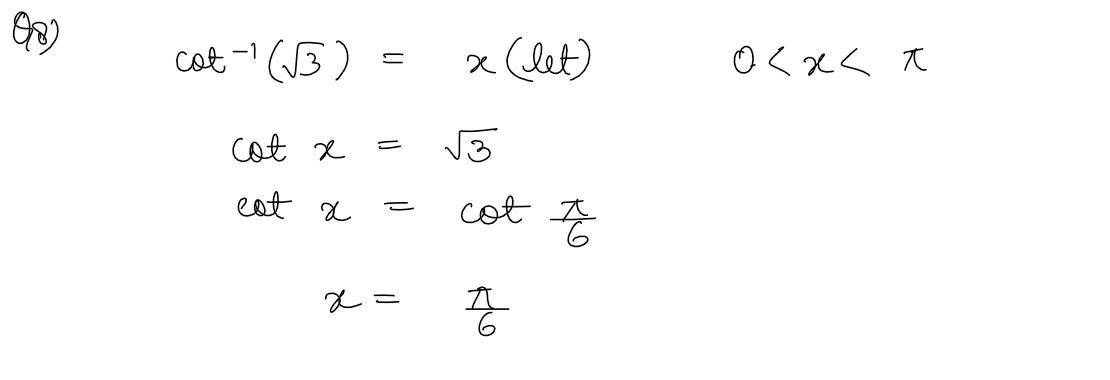 Q8)
cot⁻¹(√3) = x (let) 0 < x < π
cot x = √3
cot x = cot π/6
x = π/6